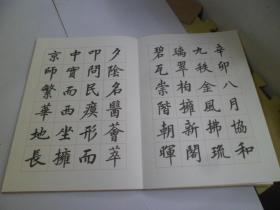 辛卯八月協和
九秩金風拂琉
璃翠柏擁新閣
碧瓦崇階朝暉
夕陰名醫薈萃
叩問民瘼形而
中實而西坐擁
京師繁華地長